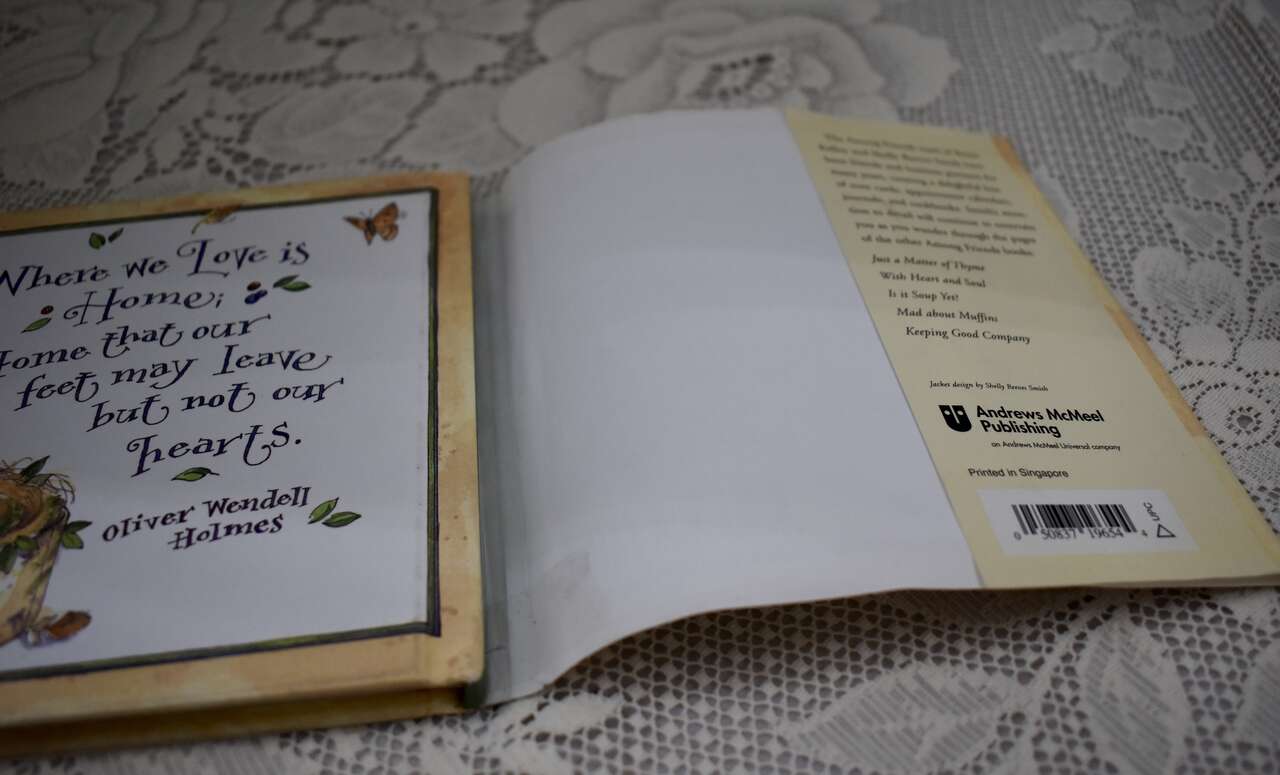 Where we Love is
Home;
Home that our
feet may leave
but not our
hearts.
Oliver Wendell
Holmes
The Among Friends team of Suzan
and Shelly Reeves Smith
have
many years, creating a delightful line
of note cards, appointment calendars,
journals, and cookbooks. Similar atten-
tion to detail will continue to entertain
you as you wander through the pages
of the other Among Friends books:
Just a Matter of Thyme
With Heart and Soul
Is it Soup Yet?
Mad about Muffins
Keeping Good Company
Jacket design by Shelly Reeves Smith
Andrews McMeel
Publishing
an Andrews McMeel Universal company
Printed in Singapore
UPC
0 50837 19654 4